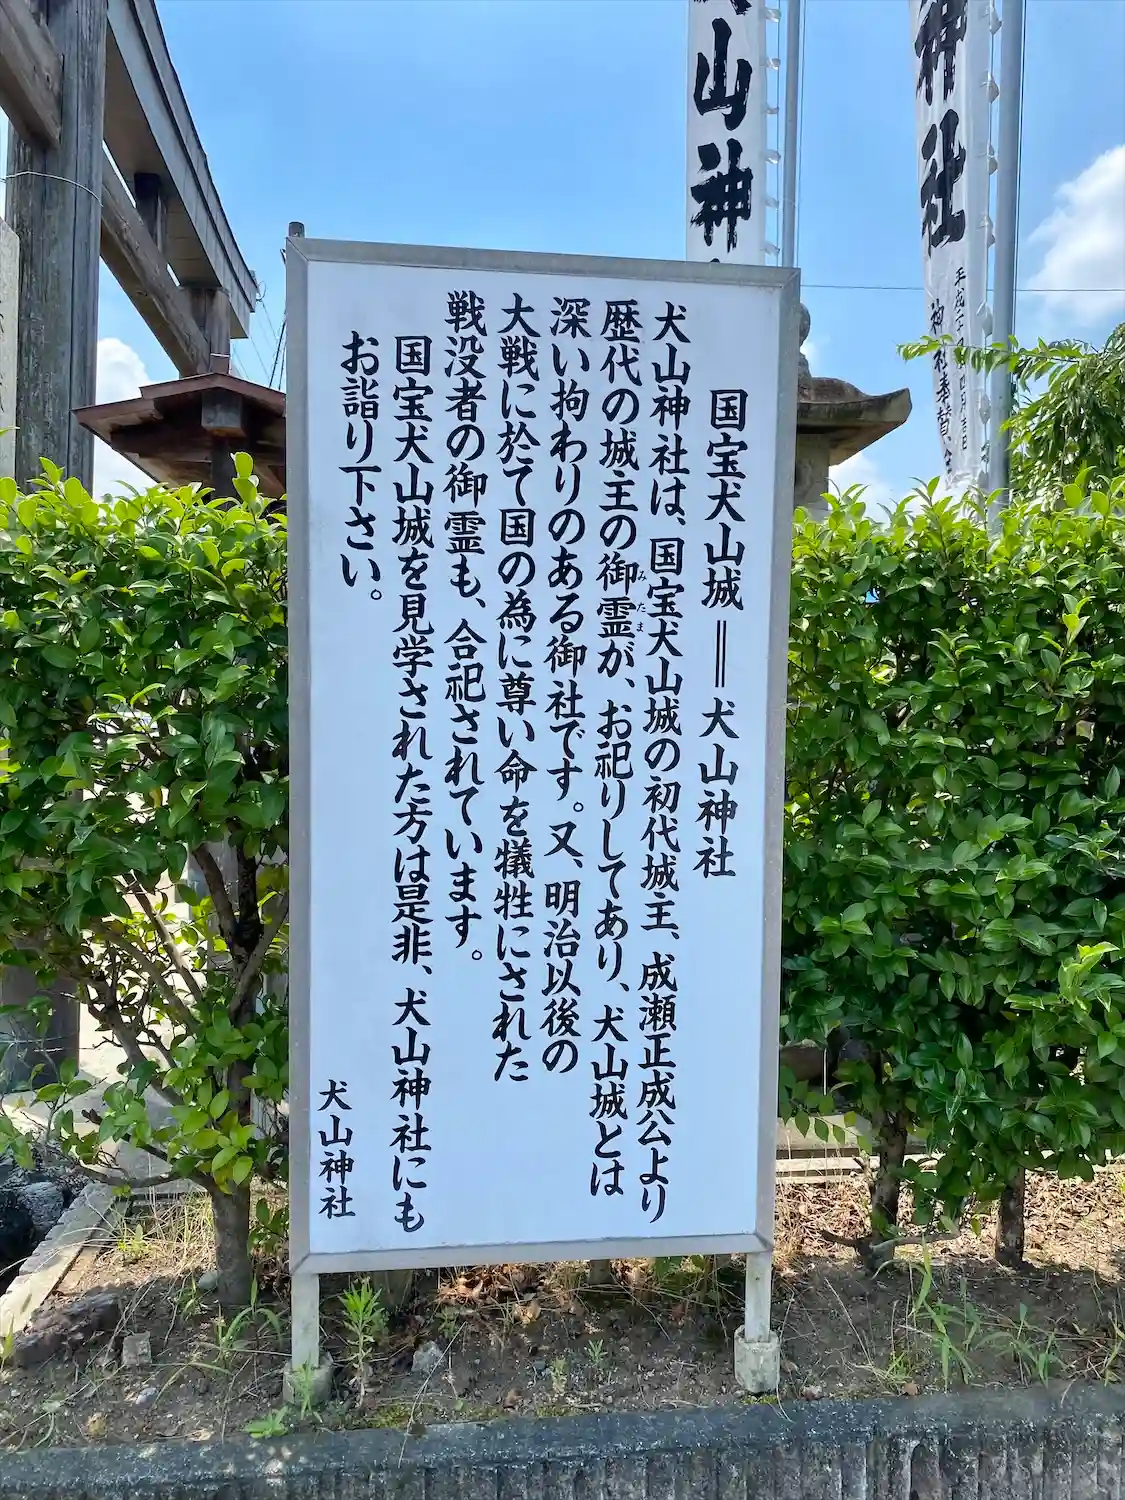 国宝犬山城＝犬山神社
犬山神社は、国宝犬山城の初代城主、成瀬正成公より
歴代の城主の御霊が、お祀りしてあり、犬山城とは
みたま
深い拘わりのある御社です。又、明治以後の
大戦に於て国の為に尊い命を犠牲にされた
戦没者の御霊も、合祀されています。
国宝犬山城を見学された方は是非、犬山神社にも
お詣り下さい。
犬山神社
山神
神社
神社奉賛会